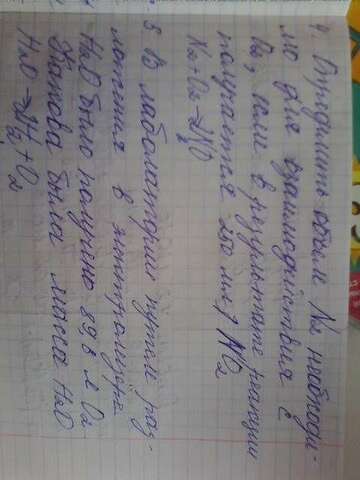 4. Определить объем N2 необходи-
мо для взаимодействия с
O2, если в результате реакции
получается 250 мл NO2
N2+O2→2NO
5 В лаболатории путем раз-
ложения в электролизёре
H2O было получено 89,6 л O2
Какова была масса H2O
H2O → 2H2+O2